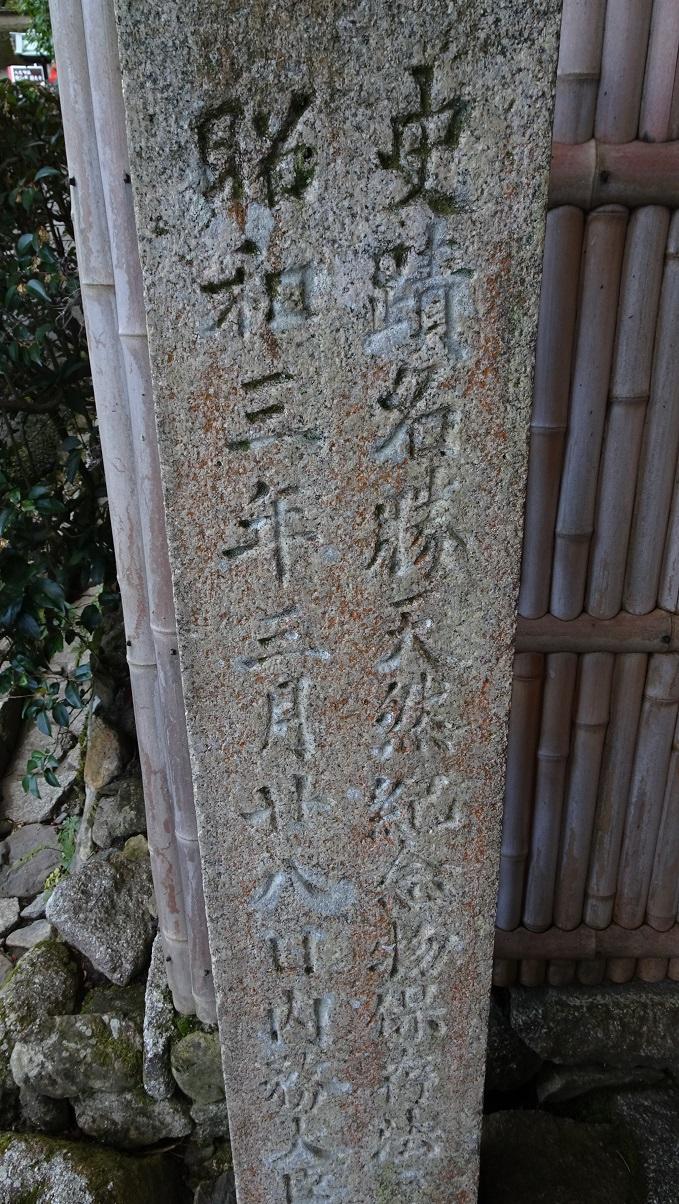 史蹟名勝天然紀念物保存法
昭和三年三月廿八日内務大臣